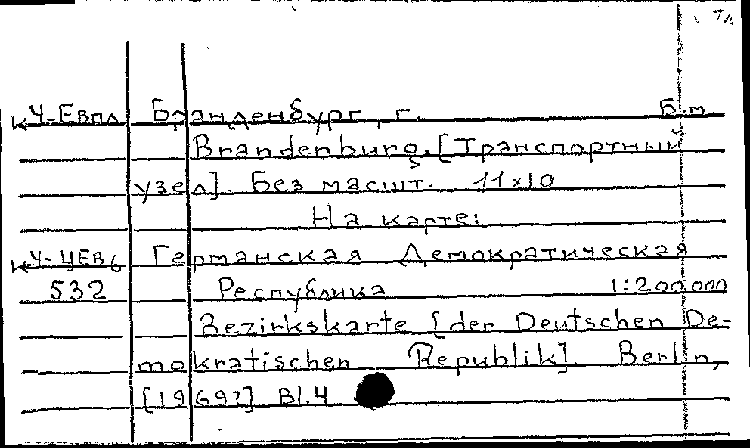 К Ч-Евпл Бранденбург, г. Б.м.
Brandenburg. [Транспортный
узел]. Без масшт. 11x10
На карте:
К Ч-ЦЕв6 Германская Демократическая
532 Республика 1:200.000
Bezirkskarte [der Deutschen De-
mokratischen Republik]. Berlin,
[1969?] Bl.4